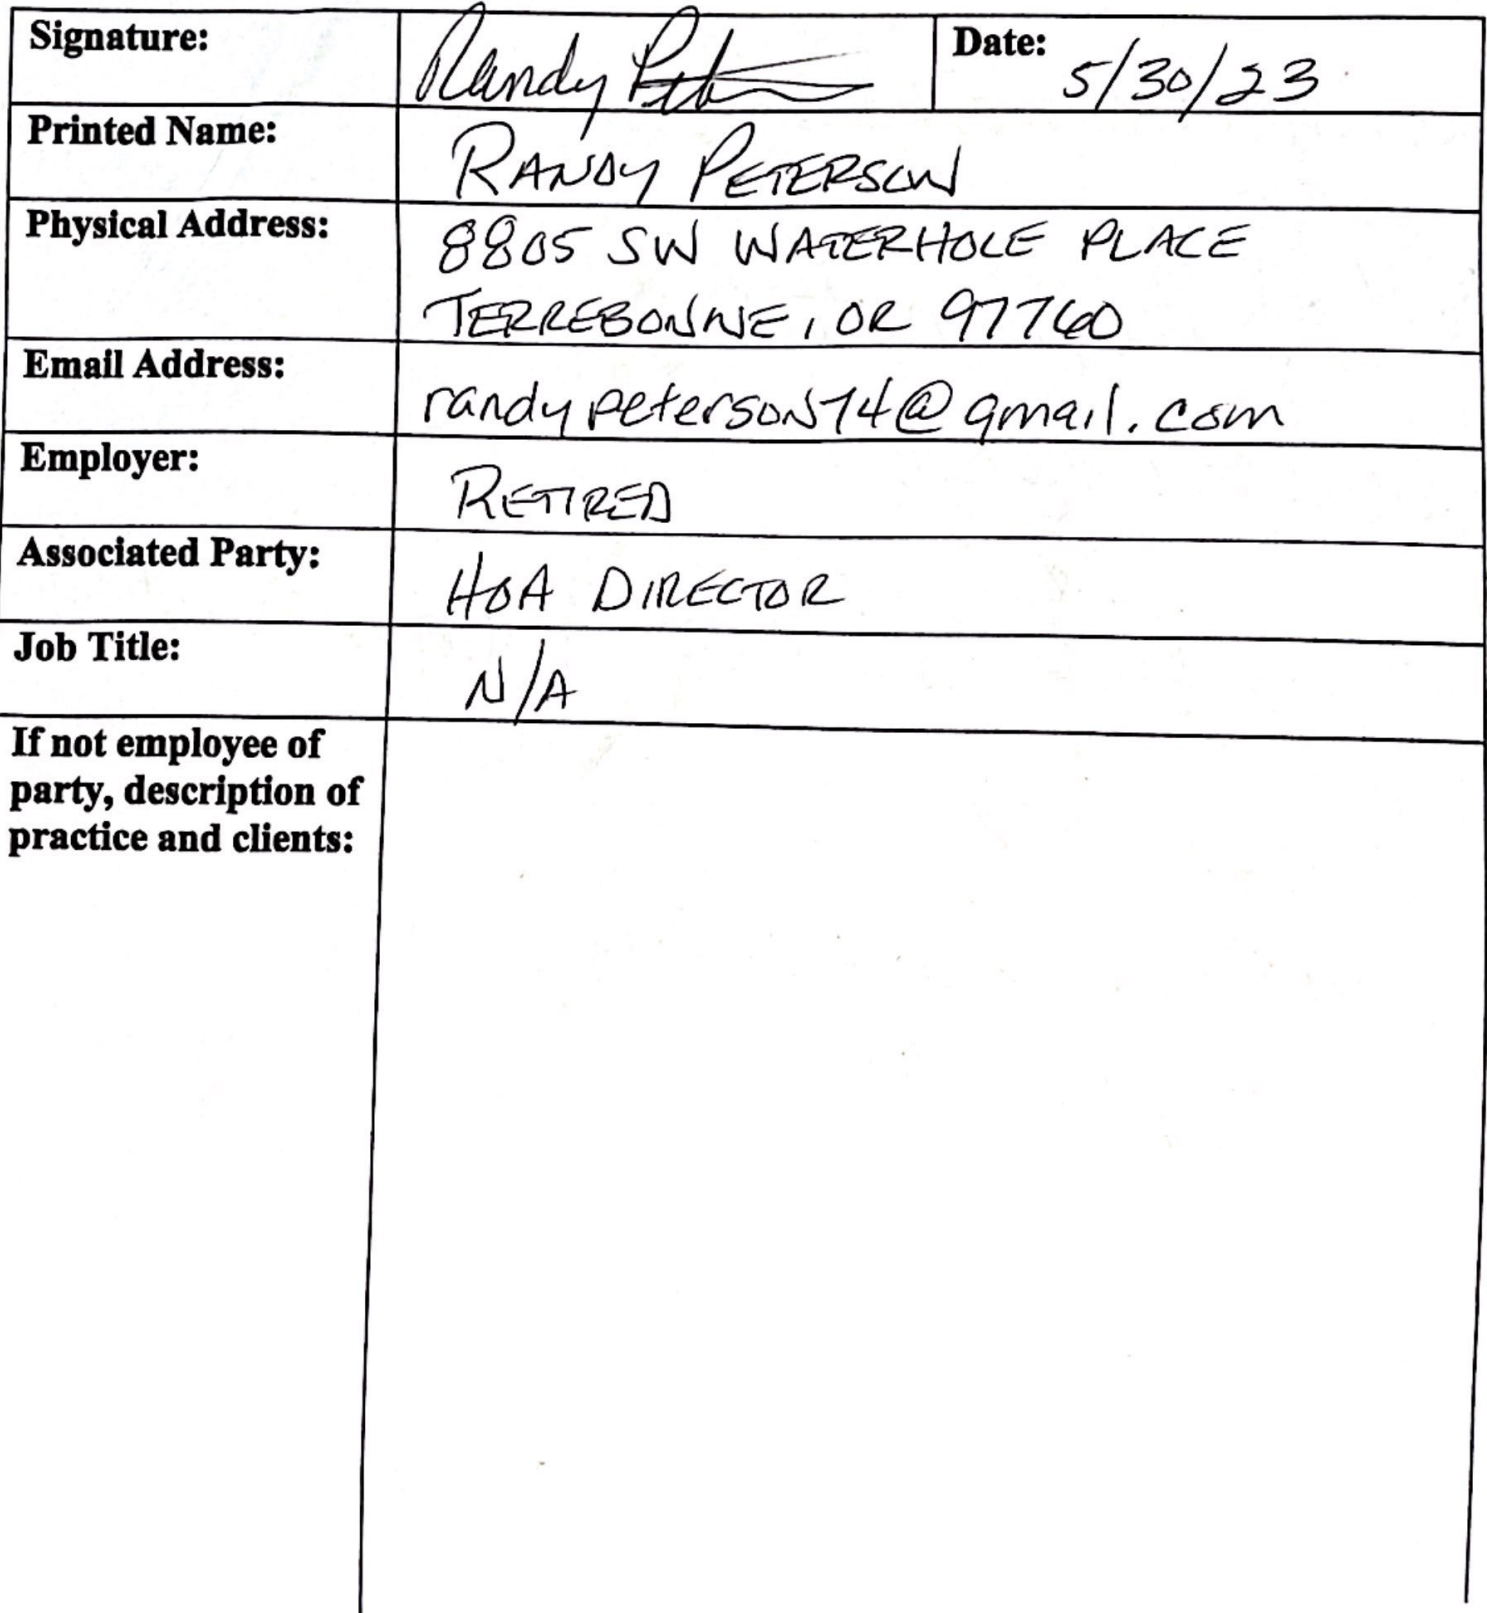 Signature: Randy Peterson Date: 5/30/23
Printed Name: RANDY PETERSON
Physical Address: 8805 SW WATERHOLE PLACE
TERREBONNE, OR 97760
Email Address: randypeterson74@gmail.com
Employer: RETIRED
Associated Party: HOA DIRECTOR
Job Title: N/A
If not employee of
party, description of
practice and clients: